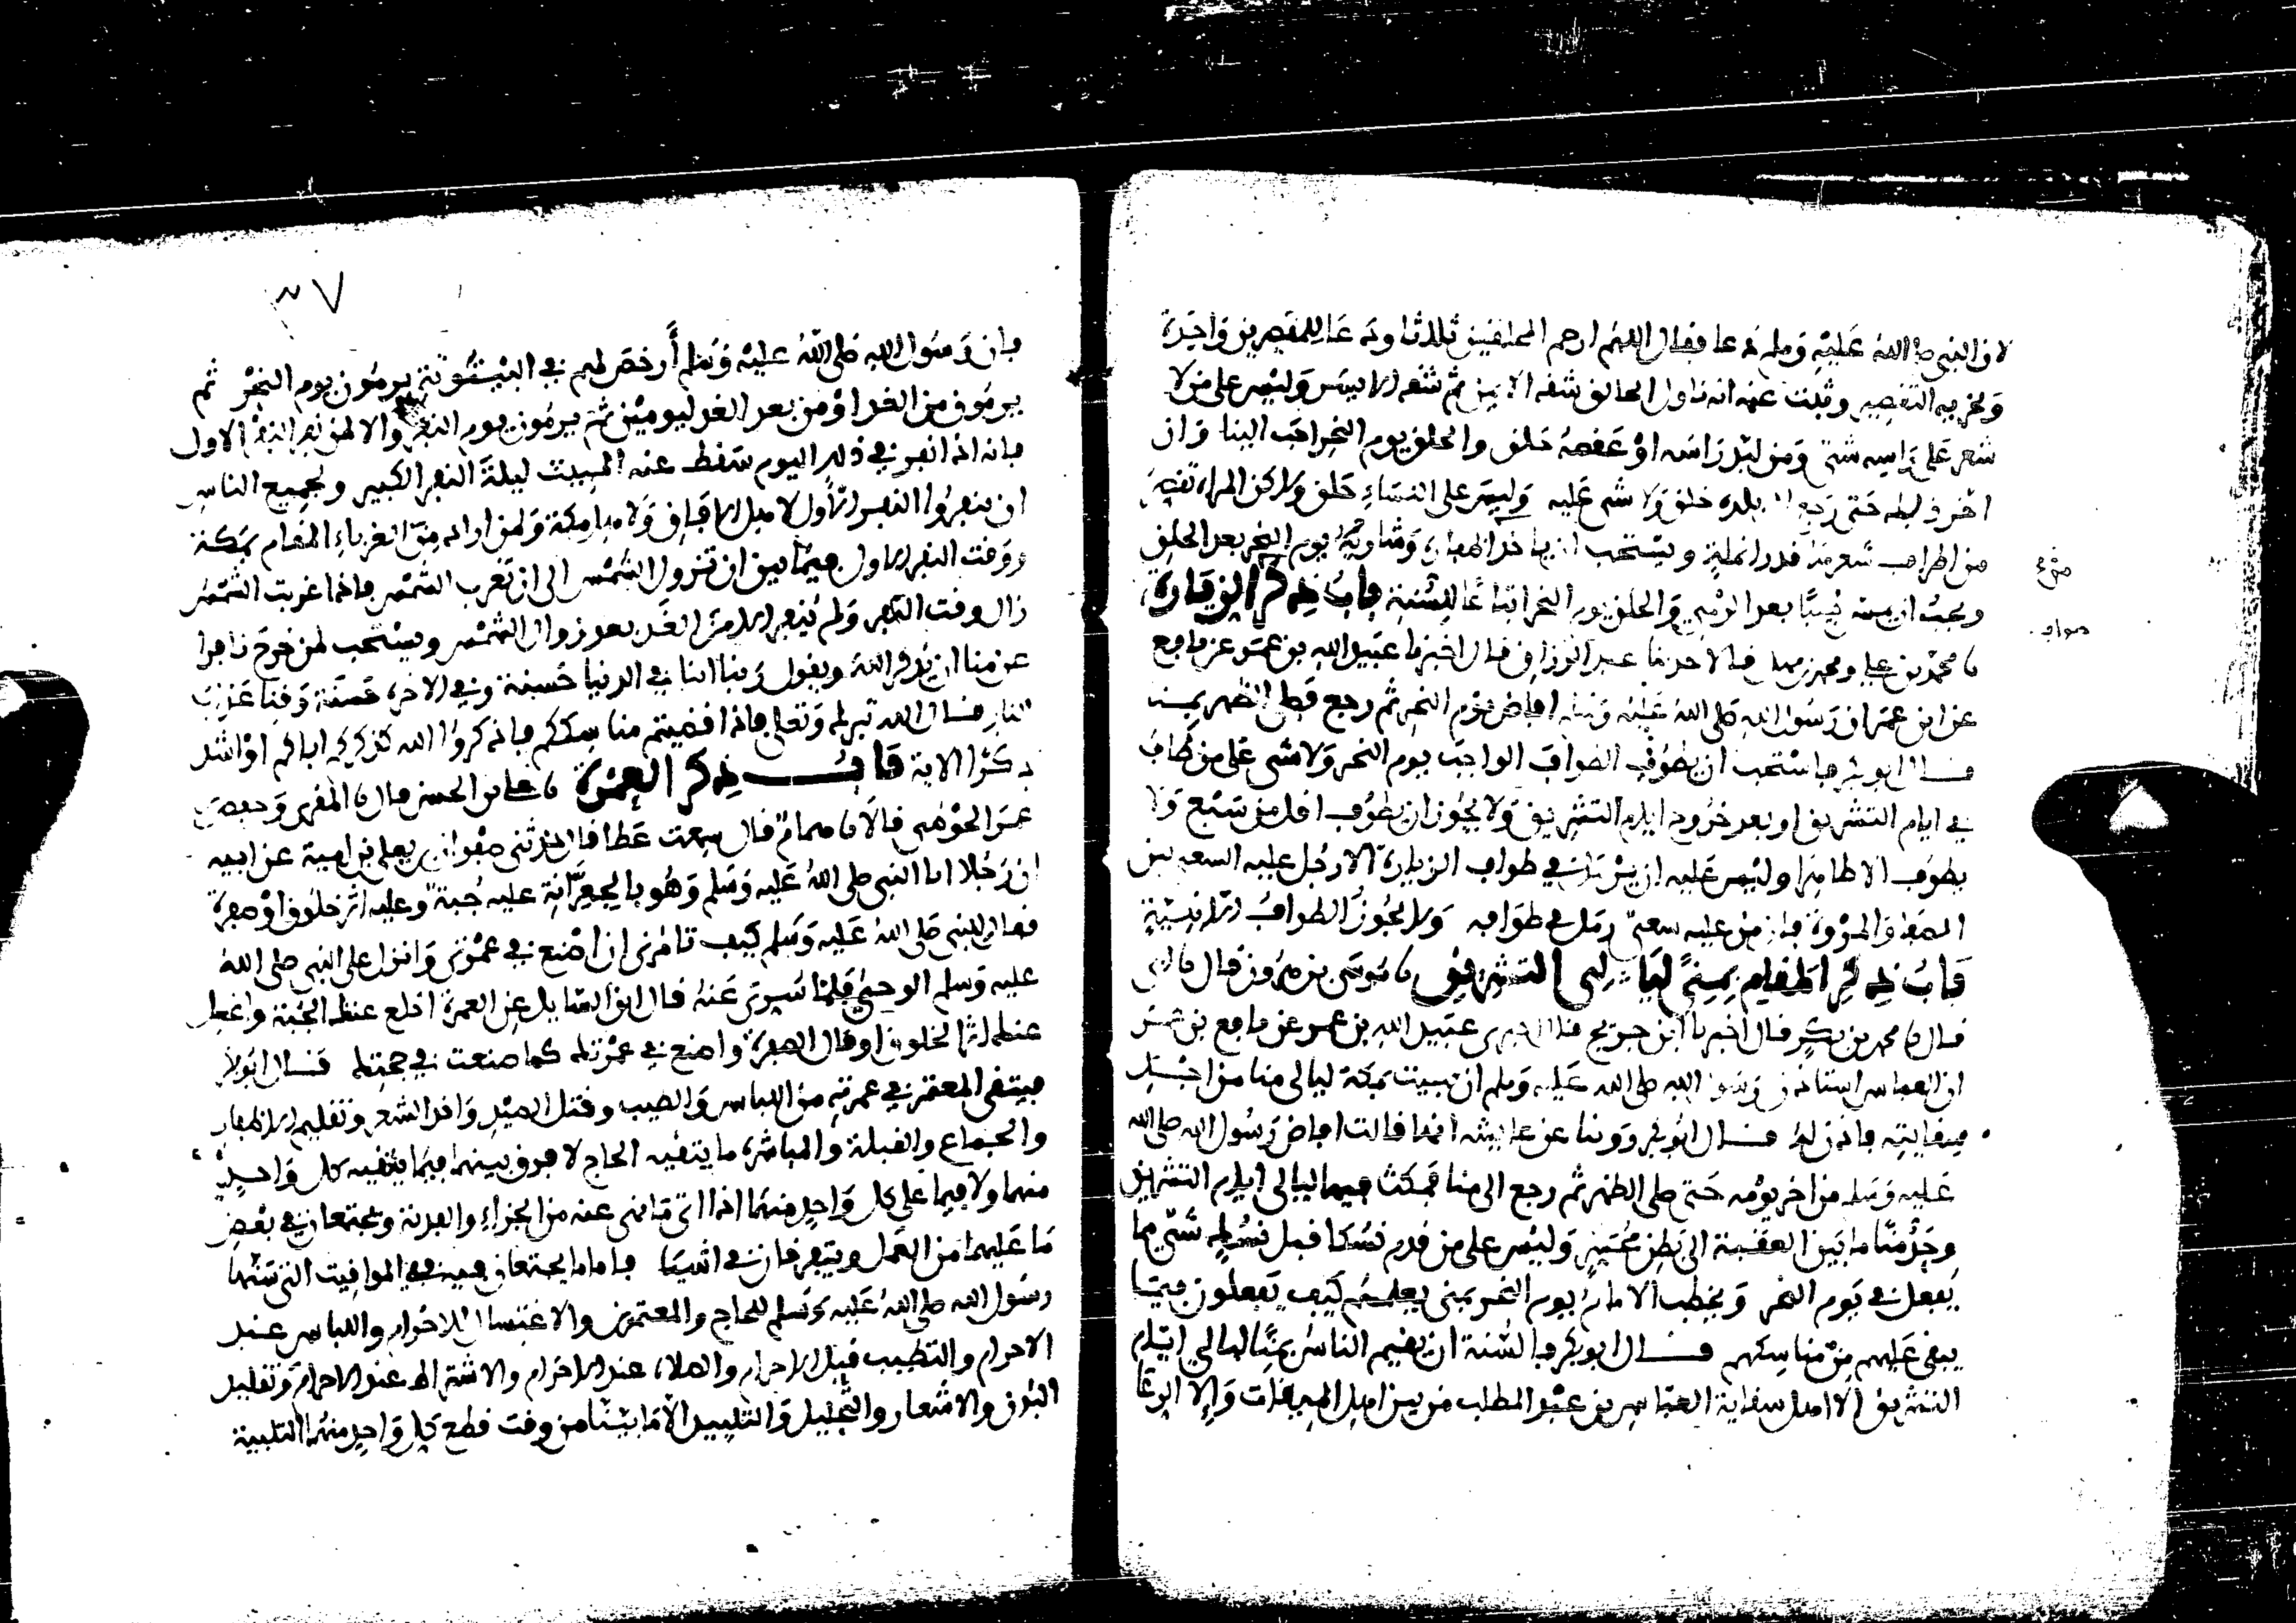 لان النبي صلى الله عليه وسلم دعا فقال اللهم ارحم المحلقين ثلاثا ودعا للمقصرين واحدة
ويجزيه التقصير وثبت عنه انه ناول الحالق شقه الايمن ثم شقه الايسر وليس على من لا
شعر على راسه شي ومن لبد راسه او عقصه حلق والحلق يوم النحر احب الينا وان
اخر ذلك حتى رجع الى بلده حلق ولا شي عليه وليس على النساء حلق ولاكن المراة تقصر
من اطراف شعرها قدر انملة ويستحب ان ياخذ اظفاره وشاربه يوم النحر بعد الحلق
ويجب ان يمس طيبا بعد الرمي والحلق يوم النحر اتباعا للسنة باب ذكر الزيارة
نا محمد بن علي ومحمد بن مهل قالا حدثنا عبد الرزاق قال اخبرنا عبيد الله بن عمر عن نافع
عن ابن عمر ان رسول الله صلى الله عليه وسلم افاض يوم النحر ثم رجع فصلى الظهر بمنى
قال ابو بكر فاستحب ان يطوف الطواف الواجب يوم النحر ولا شي على من طاف
في ايام التشريق او بعد خروج ايام التشريق ولا يجوز ان يطوف اقل من سبع ولا
يطوف الا طاهرا وليس عليه ان يرمل في طواف الزيارة الا رجل عليه السعي بين
الصفا والمروة فان من عليه سعي رمل في طوافه ولا يجوز الطواف الا بنية
باب ذكر المقام بمنى ليالى التشريق نا موسى بن هرون قال نا ابي
قال نا محمد بن بكر قال اخبرنا ابن جريج قال اخبرني عبيد الله بن عمر عن نافع بن عمر
ان العباس استاذن رسول الله صلى الله عليه وسلم ان يبيت بمكة ليالي منا من اجل
سقايته فاذن له قال ابو بكر وروينا عن عائشة انها قالت افاض رسول الله صلى الله
عليه وسلم من اخر يومه حتى صلى الظهر ثم رجع الى منا فمكث فيها ليالي ايام التشريق
وحد منا ما بين العقبة الى بطن محسر وليس على من قدم نسكا قبل نسك شي مما
يفعل في يوم النحر ويخطب الامام يوم النحر بمنى يعلمهم كيف يفعلون فيما
يبقى عليهم من مناسكهم قال ابو بكر فالسنة ان يقيم الناس بمنى ليالي ايام
التشريق الا اهل سقاية العباس بن عبد المطلب من بين اهل السقايات والا الرعا
صح
صواب
٣٧
فان رسول الله صلى الله عليه وسلم أرخص لهم في البيتوتة يرمون يوم النحر ثم
يرمون من الغد او من بعد الغد ليومين ثم يرمون يوم النفر والا لمن نفر النفر الاول
فانه اذا نفر في ذلك اليوم سقط عنه المبيت ليلة النفر الكبير ولجميع الناس
ان ينفروا النفر الاول لاهل الافاق ولاهل مكة ولمن اراد من الغرباء المقام بمكة
ووقت النفر الاول فيما بين ان تزول الشمس الى ان تغرب الشمس فاذا غربت الشمس
زال وقت النفر ولم ينفر الا من الغد بعد زوال الشمس ويستحب لمن خرج نافرا
عن منا ان يذكر الله ويقول ربنا اتنا في الدنيا حسنة وفي الاخرة حسنة وقنا عذاب
النار قال الله تبرك وتعلى فاذا قضيتم مناسككم فاذكروا الله كذكركم اباكم او اشد
ذكرا الاية باب ذكر العمرة نا علي بن الحسن قال نا المقري وحفص بن
عمر الحوضي قالا نا همام قال سمعت عطا قال حدثني صفوان بن يعلى بن امية عن ابيه
ان رجلا اتا النبي صلى الله عليه وسلم وهو بالجعرانة عليه جبة وعليه اثر خلوق او صفرة
فقال للنبي صلى الله عليه وسلم كيف تامرني ان اصنع في عمرتي وانزل على النبي صلى الله
عليه وسلم الوحي فلما سري عنه قال اين السايل عن العمرة اخلع عنك الجبة واغسل
عنك اثر الخلوق او قال الصفرة واصنع في عمرتك كما صنعت في حجتك قال ابو بكر
فيتقى المعتمر في عمرته من اللباس والطيب وقتل الصيد واخذ الشعر وتقليم الاظفار
والجماع والقبلة والمباشرة ما يتقيه الحاج لا فرق بينهما فيما يتقيه كل واحد
منهما ولا فيما على كل واحد منهما اذا اتى ما نهى عنه من الجزاء والفدية ويجتمعان في بعض
ما عليهما من العمل ويتفرقان في اشيا فاما ما يجتمعان فيه ففي المواقيت التي سنها
رسول الله صلى الله عليه وسلم للحاج والمعتمرين والاغتسال للاحرام واللباس عند
الاحرام والتطيب قبل الاحرام والصلاة عند الاحرام والاشتراط عند الاحرام وتقليد
البدن والاشعار والتجليل والتلبية الا ما بينا من وقت قطع كل واحد منهما التلبية